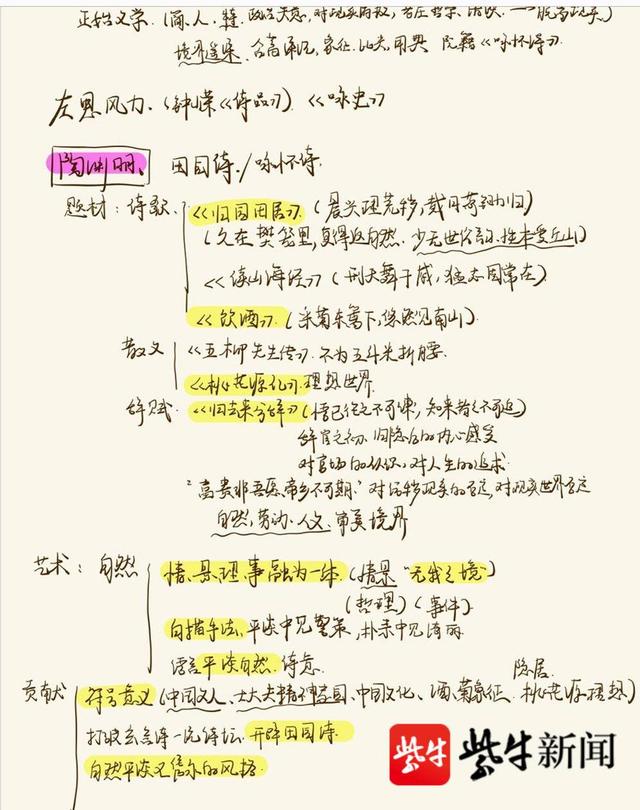 正始文学.
境界邃深, 含高 象征, 比兴, 用典 阮籍《咏怀诗》.
左思风力. (钟嵘《诗品》) 《咏史》
陶渊明. 田园诗./咏怀诗.
题材: 诗歌. 《归园田居》. (晨兴理荒秽, 戴月荷锄归)
(久在樊笼里, 复得返自然. 少无世俗韵, 性本爱丘山)
《读山海经》 (刑天舞干戚, 猛志固常在)
《饮酒》. (采菊东篱下, 悠然见南山)
散文 《五柳先生传》. 不为五斗米折腰.
《桃花源记》. 理想世界
辞赋. 《归去来兮辞》 (悟已往之不可谏, 知来者之不可追)
辞官之初. 归隐后的内心感受
对官场的认识, 对人生的追求
"富贵非吾愿, 帝乡不可期." 对污秽现实的否定, 对现实世界否定
自然, 劳动. 人文. 审美境界
艺术: 自然 情. 景. 理. 事融为一体. (情景 "无我之境")
(哲理) (事件)
白描手法. 平淡中见警策, 朴素中见绮丽
语言平淡自然. 诗意.
隐居.
贡献 符号意义 (中国文人, 士大夫精神家园, 中国文化、酒、菊象征. 桃花源理想)
打破玄言诗一统诗坛. 开辟田园诗.
自然平淡又 的风格
紫牛 紫牛新闻